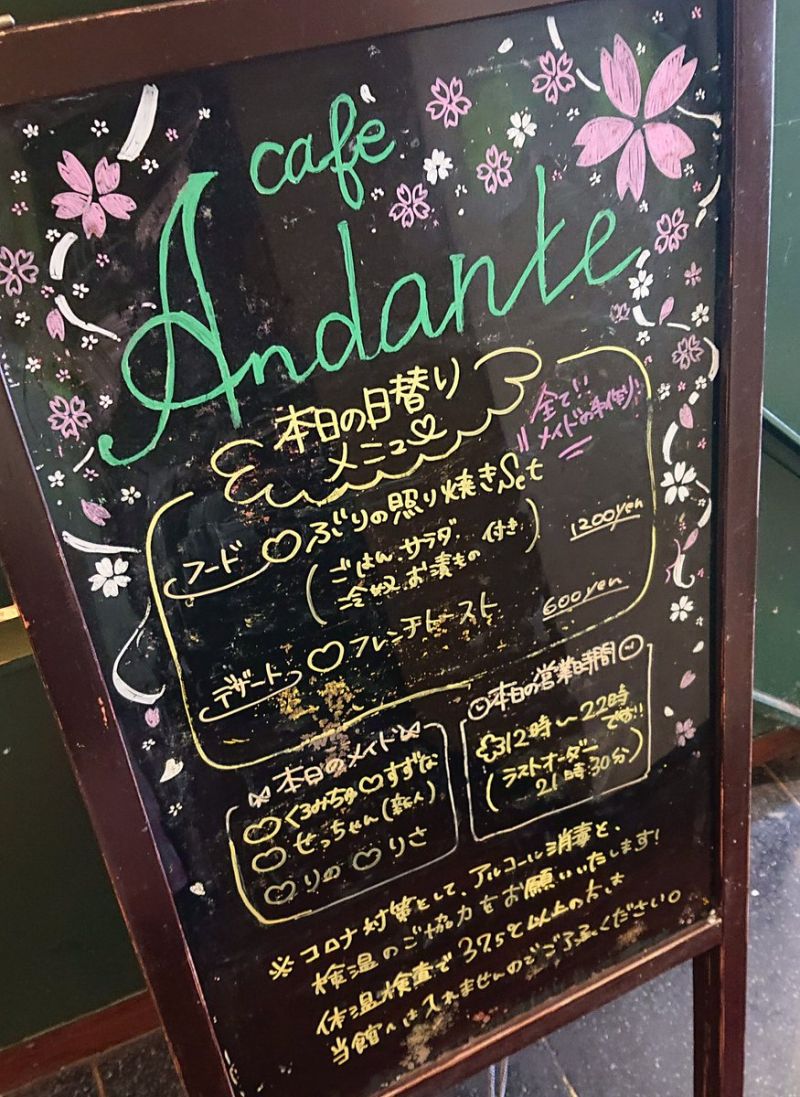 cafe
Andante
本日の日替り
メニュー
全て!!
メイドの手作り!
フード ♡ ぶりの照り焼きSet
(ごはん、サラダ、
冷奴、お漬もの 付き)
1200yen
デザート ♡ フレンチトースト
600yen
本日のメイド
♡くるみちゅ♡すずな
♡せっちゃん(新人)
♡りの♡りさ
本日の営業時間
12時〜22時
です!!
(ラストオーダー
21時30分)
※コロナ対策として、アルコール消毒と、
検温のご協力をお願いいたします!
体温検査で37.5℃以上の方は
当館へは入れませんのでご了承ください。